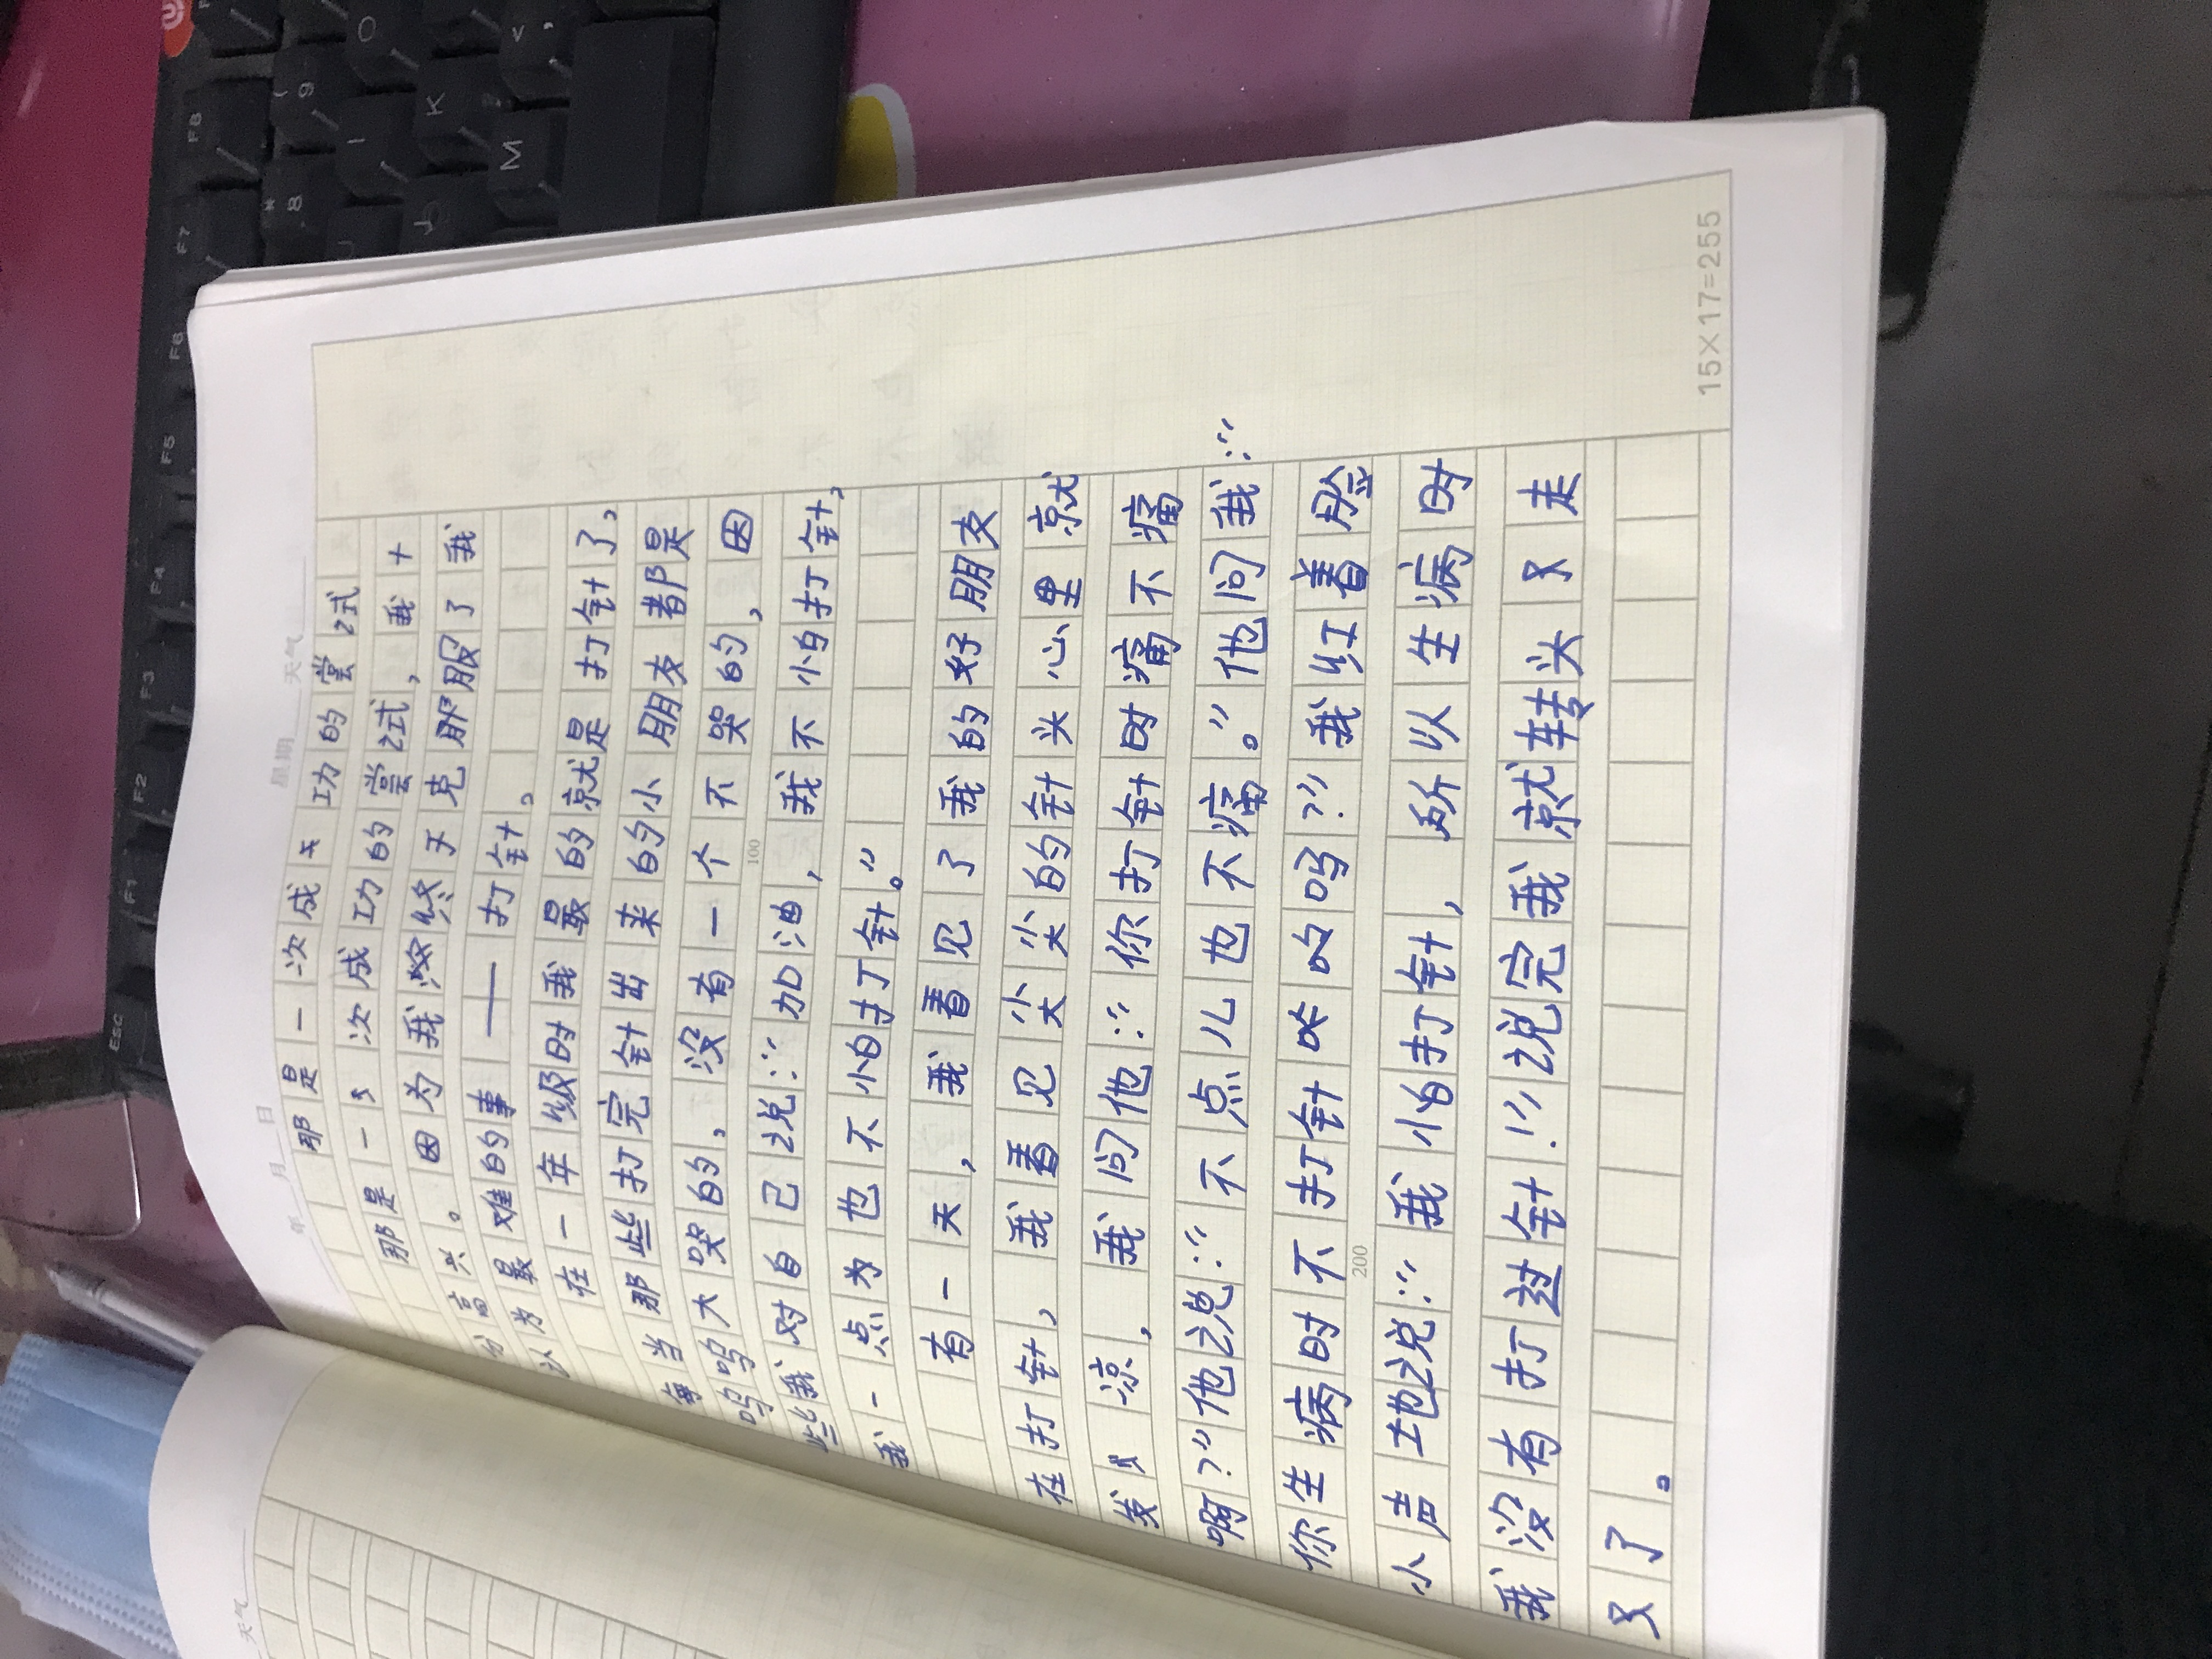 年 月 日 星期 天气
那是一次成功的尝试
那是一次成功的尝试，我十
分高兴。因为我终于克服了我
认为最难的事——打针。
在一年级时我最的就是打针了，
每当那些打完针出来的小朋友都是
呜呜大哭的，没有一个不哭的，因
些我对自己说：“加油，我不怕打针，
我一点为也不怕打针。”
100
有一天，我看见了我的好朋友
在打针，我看见尖尖的针头心里就
发凉，我问他：“你打针时痛不痛
啊？”他说：“不点儿也不痛。”他问我：“
你生病时不打针的吗？”我红着脸
200
小声地说：“我怕打针，所以生病时
我没有打过针！”说完我就转头又走
又了。
15×17=255
天气
ESC
F1
F2
F3
F4
F5
F6
F7
F8
* 8
( 9
I
O
J
K
M
< ,